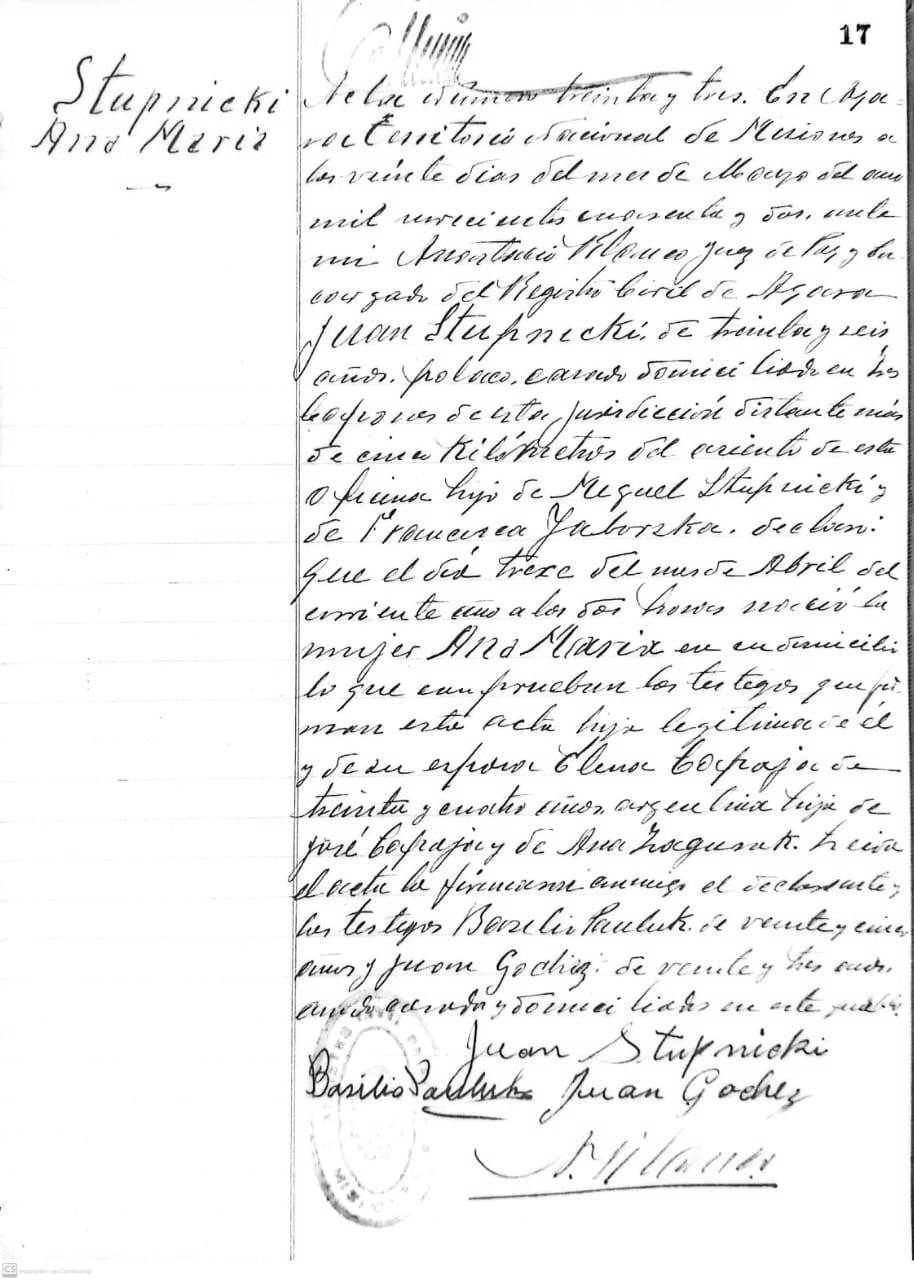 17
Stupnicki
Ana Maria
Acta número treinta y tres. En Aza-
ra Territorio Nacional de Misiones a
los veinte dias del mes de Mayo del año
mil novecientos cuarenta y dos. ante
mi Anastacio Juez de Paz y En-
cargado del Registro Civil de Azara
Juan Stupnicki. de treinta y seis
años. polaco. casado domiciliado en Tres
Capones de esta jurisdicción distante más
de cinco Kilómetros del asiento de esta
Oficina hijo de Miguel Stupnicki y
de Francisca Jaborska. declaró:
Que el día trexe del mes de Abril del
corriente año a las dos horas nació la
mujer Ana Maria en su domicilio
lo que comprueban los testigos que fir-
man esta acta hija legitima de él
y de su esposa Elena Capaja de
treinta y cuatro años. argentina hija de
José Capaja y de Ana Leida
el acta la firmaron conmigo el declarante y
los testigos Basilio Pauluk. de veinte y cinco
años y Juan Gochez. de veinte y tres años.
ambos casados y domiciliados en este pueblo.
Juan Stupnicki
Basilio Pauluk Juan Gochez